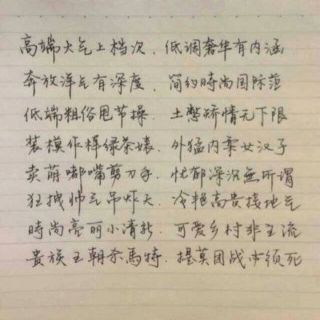 高端大气上档次，低调奢华有内涵
奔放洋气有深度，简约時尚国际范
低端粗俗甩节操，土憋矫情无下限
装模作样绿茶婊，外猛内柔女汉子
卖萌嘟嘴剪刀手，忧郁深沉無所谓
狂拽帅气吊炸天，冷艳高贵接地气
時尚亮丽小清新，可爱乡村非主流
贵族王朝杀馬特，提莫团战必须死